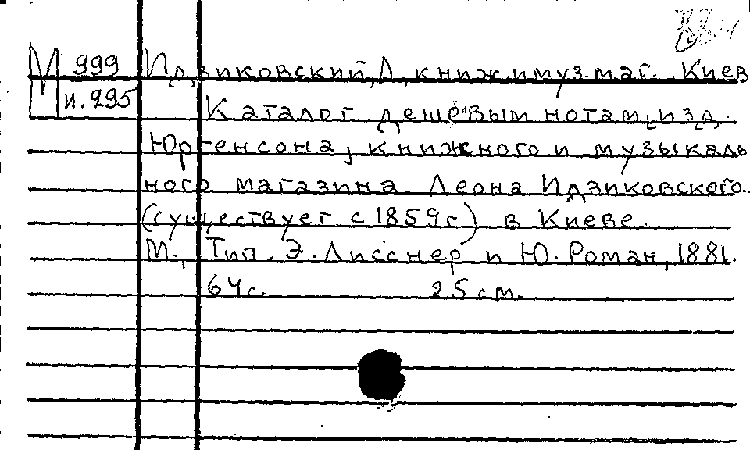 М 999 Идзиковский, Л, книж и муз маг. Киев
и. 295 Каталог дешёвым нотам, изд.
Юргенсона, книжного и музыкаль
ного магазина Леона Идзиковского.
(существует с 1859 г) в Киеве.
М., Тип. Э. Лисснер и Ю. Роман, 1881.
64 с. 25 см.